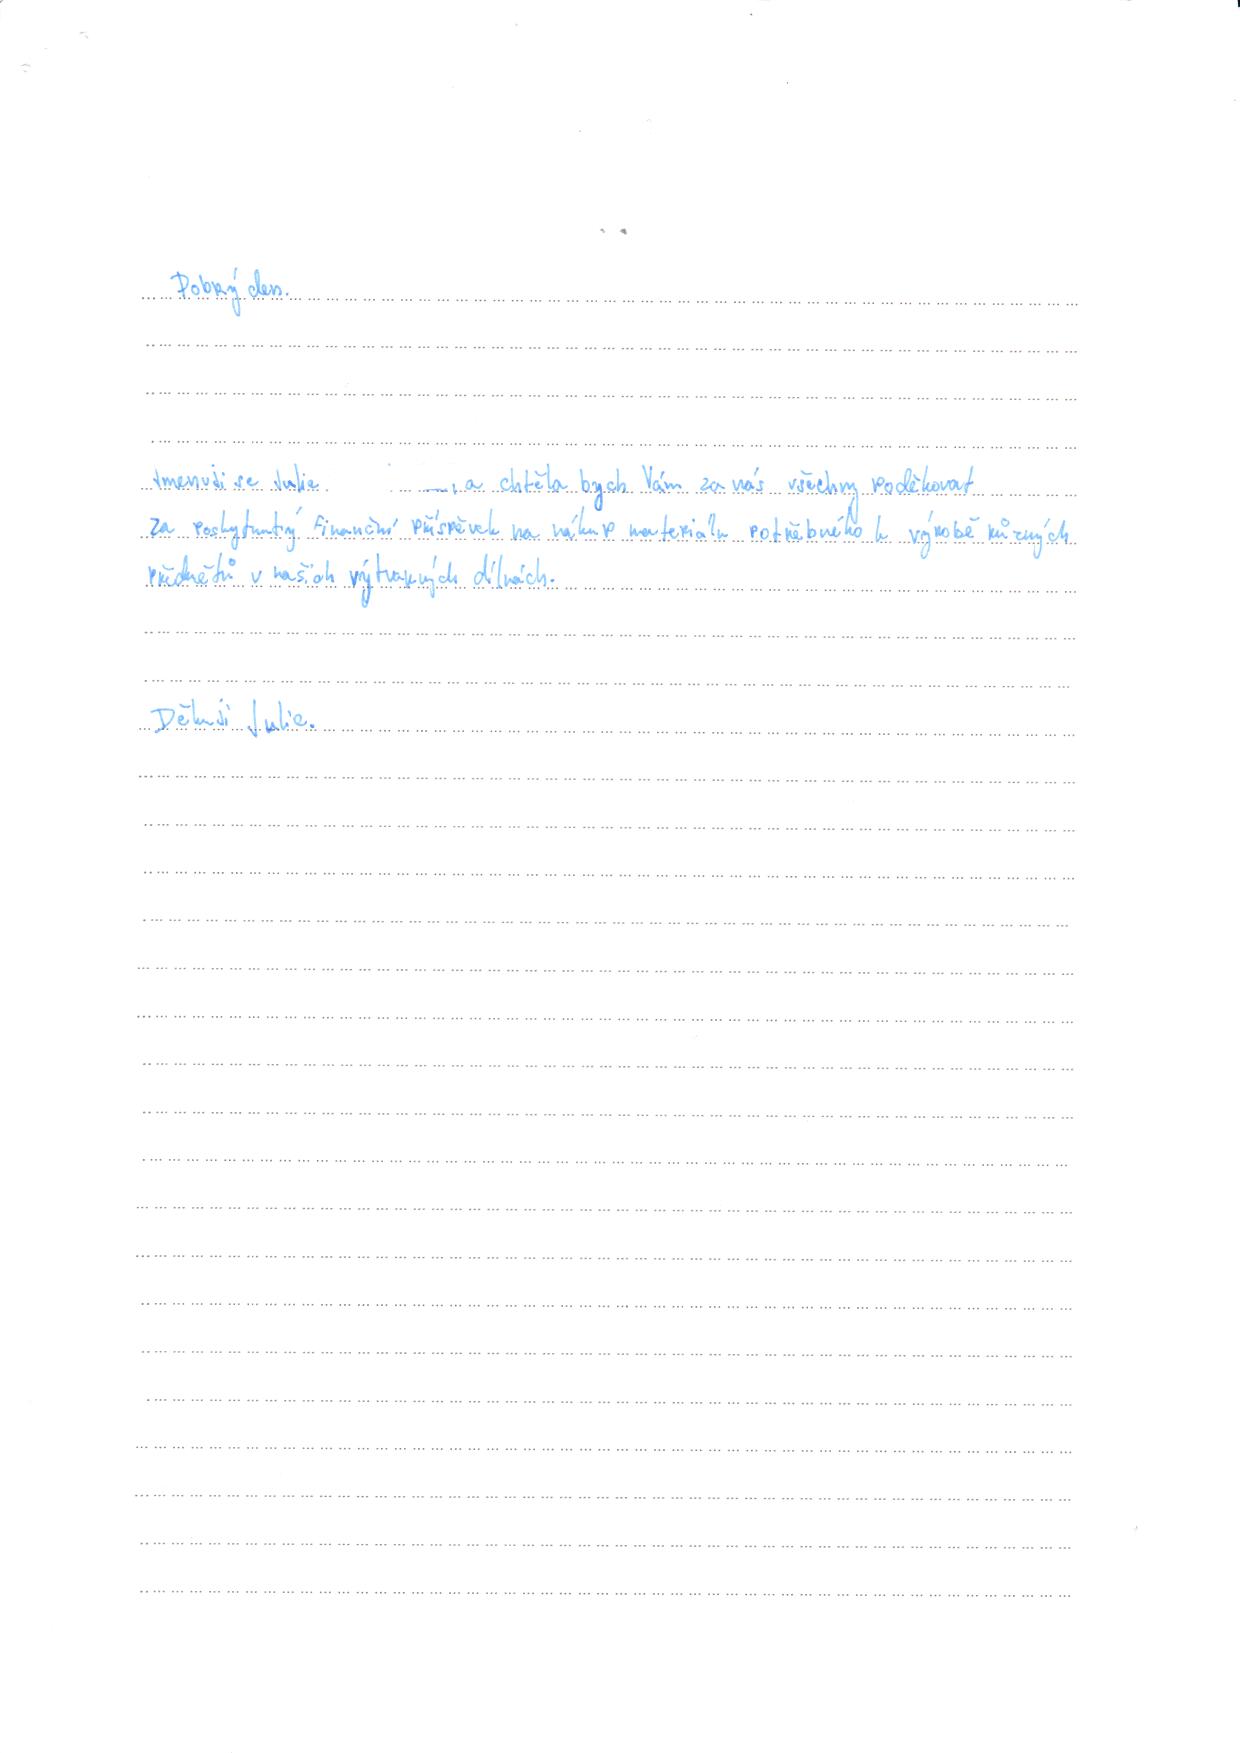 Dobrý den.
Jmenuji se Julie , a chtěla bych Vám za nás všechny poděkovat
za poskytnutý finanční příspěvek na nákup materiálu potřebného k výrobě různých
předmětů v našich výtvarných dílnách.
Děkuji Julie.